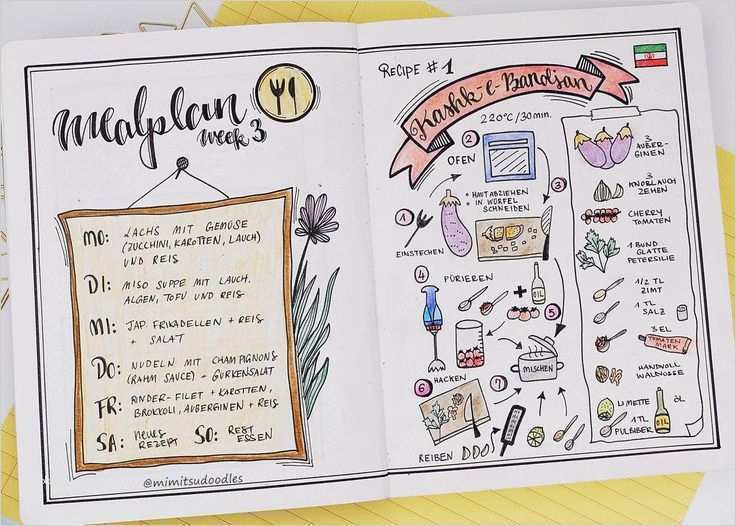 Mealplan
Week 3
MO: LACHS MIT GEMÜSE
(ZUCCHINI, KAROTTEN, LAUCH)
UND REIS
DI: MISO SUPPE MIT LAUCH,
ALGEN, TOFU UND REIS
MI: JAP. FRIKADELLEN + REIS
+ SALAT
DO: NUDELN MIT CHAMPIGNONS
(RAHM SAUCE) + GURKENSALAT
FR: RINDER-FILET + KAROTTEN,
BROKKOLI, AUBERGINEN + REIS
SA: NEUES
REZEPT
SO: REST
ESSEN
@mimitsudoodles
RECIPE #1
Kashk-e-Bandjan
220°C/30min.
2
OFEN
• HAUT ABZIEHEN
• IN WÜRFEL
SCHNEIDEN
3
1
EINSTECHEN
4
PÜRIEREN
+
OIL
5
MISCHEN
6
HACKEN
7
REIBEN
3
AUBER-
GINEN
3
KNOBLAUCH
ZEHEN
CHERRY
TOMATEN
1 BUND
GLATTE
PETERSILIE
1/2 TL
ZIMT
1 TL
SALZ
3 EL
TOMATEN
MARK
HANDVOLL
WALNÜSSE
LIMETTE
ÖL
OIL
1 TL
PULBIBER